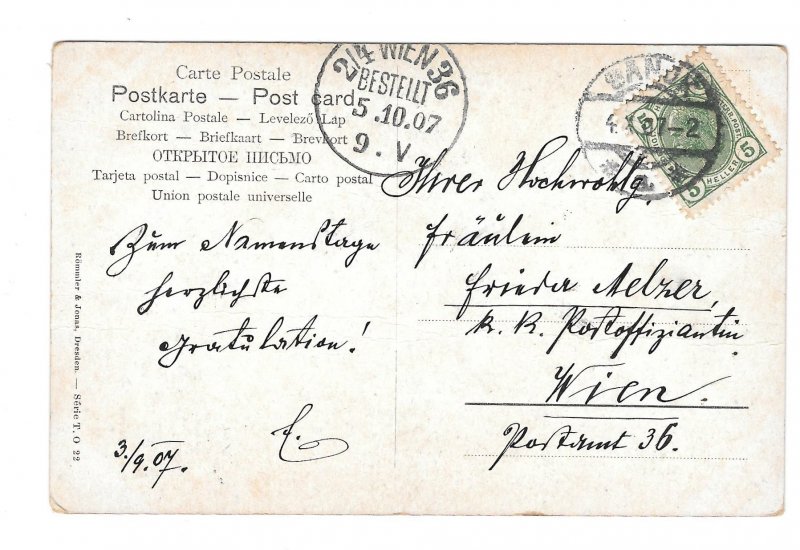 Carte Postale
Postkarte — Post card
Cartolina Postale — Levelező Lap
Brefkort — Briefkaart — Brevkort
ОТКРЫТОЕ ПИСЬМО
Tarjeta postal — Dopisnice — Carto postal
Union postale universelle
2/4 WIEN 36
BESTELLT
5.10.07
9.V
5 HELLER 5
Zum Namenstage
herzlichste
Gratulation!
E.
3./9.07.
Ihrer Hochwohlg.
Fräulein
Frieda Melzer,
k. k. Postoffiziantin
Wien.
Postamt 36.
Römmler & Jonas, Dresden. — Série T. O 22